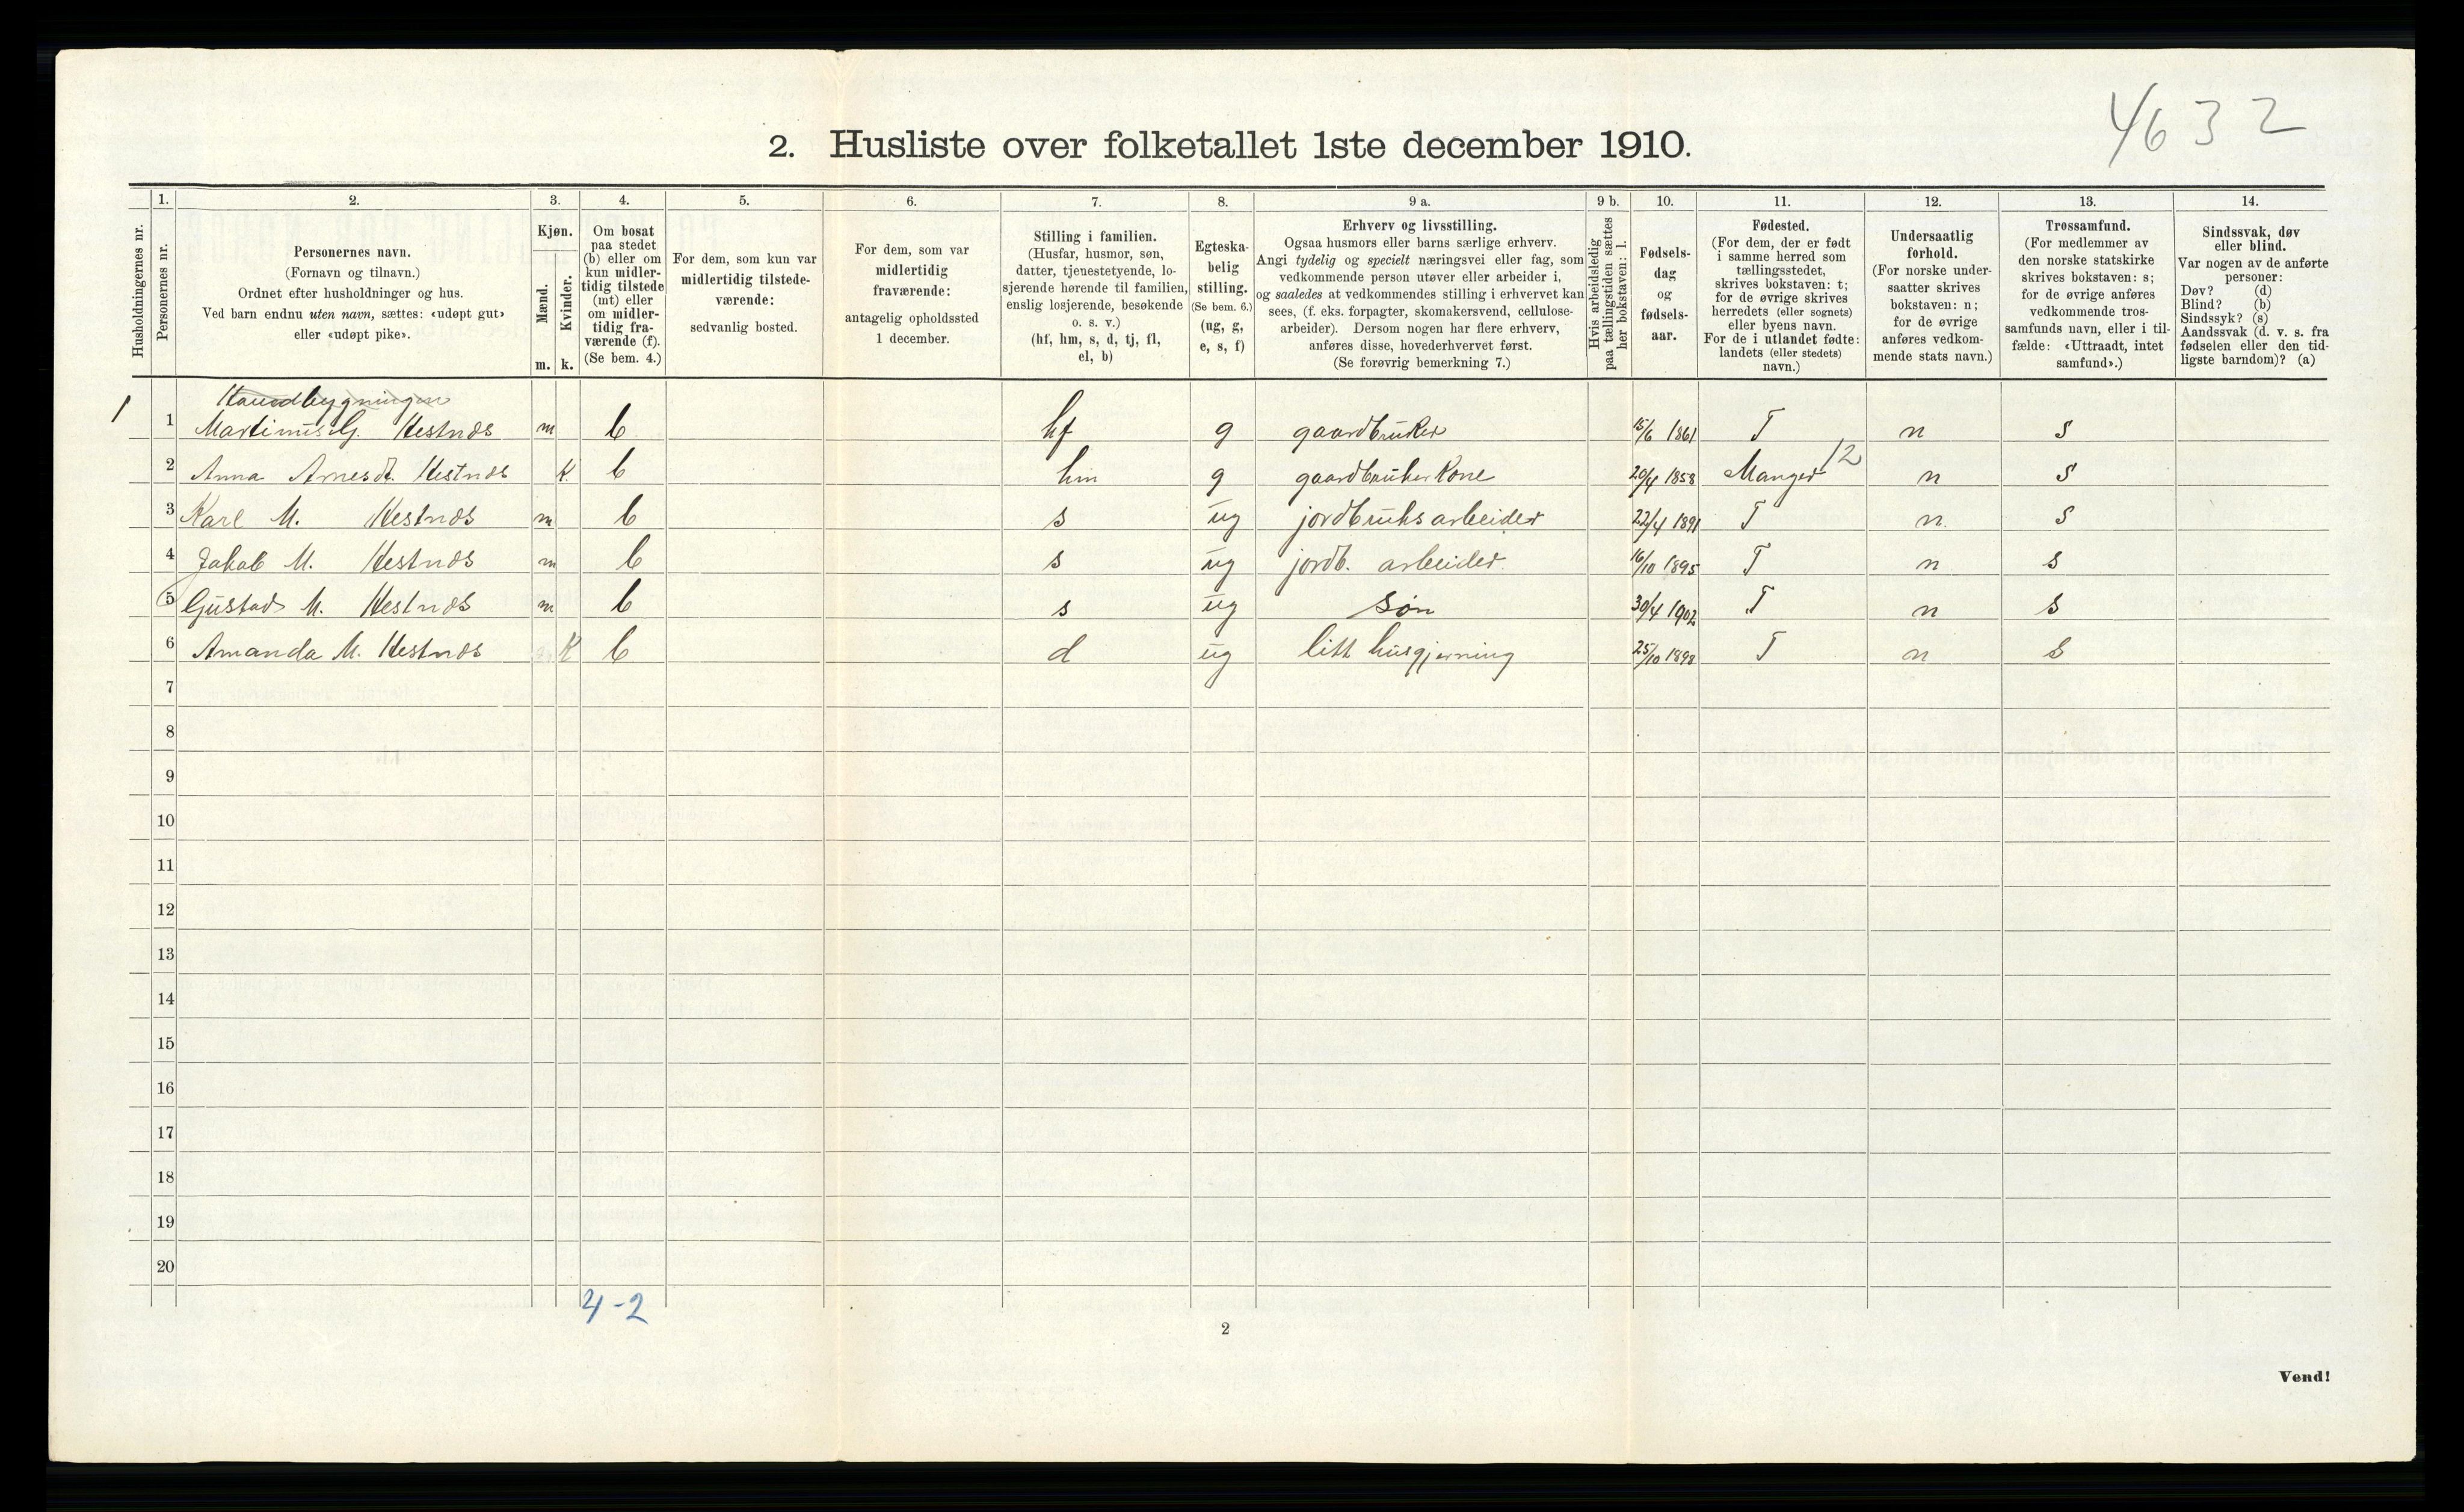 4632
2. Husliste over folketallet 1ste december 1910.
1. 2. 3. 4. 5. 6. 7. 8. 9 a. 9 b. 10. 11. 12. 13. 14.
Husholdningernes nr.
Personernes nr.
Personernes navn.
(Fornavn og tilnavn.)
Ordnet efter husholdninger og hus.
Ved barn endnu uten navn, sættes: «udøpt gut»
eller «udøpt pike».
Kjøn.
Mænd.
Kvinder.
m. k.
Om bosat
paa stedet
(b) eller om
kun midler-
tidig tilstede
(mt) eller
om midler-
tidig fra-
værende (f).
(Se bem. 4.)
For dem, som kun var
midlertidig tilstede-
værende:
sedvanlig bosted.
For dem, som var
midlertidig
fraværende:
antagelig opholdssted
1 december.
Stilling i familien.
(Husfar, husmor, søn,
datter, tjenestetyende, lo-
sjerende hørende til familien,
enslig losjerende, besøkende
o. s. v.)
(hf, hm, s, d, tj, fl,
el, b)
Egteska-
belig
stilling.
(Se bem. 6.)
(ug, g,
e, s, f)
Erhverv og livsstilling.
Ogsaa husmors eller barns særlige erhverv.
Angi tydelig og specielt næringsvei eller fag, som
vedkommende person utøver eller arbeider i,
og saaledes at vedkommendes stilling i erhvervet kan
sees, (f. eks. forpagter, skomakersvend, cellulose-
arbeider). Dersom nogen har flere erhverv,
anføres disse, hovederhvervet først.
(Se forøvrig bemerkning 7.)
Hvis arbeidsledig
paa tællingstiden sættes
her bokstaven: l.
Fødsels-
dag
og
fødsels-
aar.
Fødested.
(For dem, der er født
i samme herred som
tællingsstedet,
skrives bokstaven: t;
for de øvrige skrives
herredets (eller sognets)
eller byens navn.
For de i utlandet fødte:
landets (eller stedets)
navn.)
Undersaatlig
forhold.
(For norske under-
saatter skrives
bokstaven: n;
for de øvrige
anføres vedkom-
mende stats navn.)
Trossamfund.
(For medlemmer av
den norske statskirke
skrives bokstaven: s;
for de øvrige anføres
vedkommende tros-
samfunds navn, eller i til-
fælde: «Uttraadt, intet
samfund».)
Sindssvak, døv
eller blind.
Var nogen av de anførte
personer:
Døv? (d)
Blind? (b)
Sindssyk? (s)
Aandssvak (d. v. s. fra
fødselen eller den tid-
ligste barndom)? (a)
1 1 Martinus G. Hestnæs m b hf g gaardbruker 15/6 1861 T n s
2 Anna Arnesdt. Hestnæs k. b hm g gaardbruker kone 20/4 1858 Manger 12 n s
3 Karl M. Hestnæs m b s ug jordbruks arbeider 22/4 1891 T n. s
4 Jakob M. Hestnæs m b s ug jordb. arbeider 16/10 1895 T n s
5 Gustad M. Hestnæs m b s ug søn 30/4 1902 T n s
6 Amanda M. Hestnæs K b d ug litt husgjerning 25/10 1898 T n s
7
8
9
10
11
12
13
14
15
16
17
18
19
20
4-2
2
Vend!